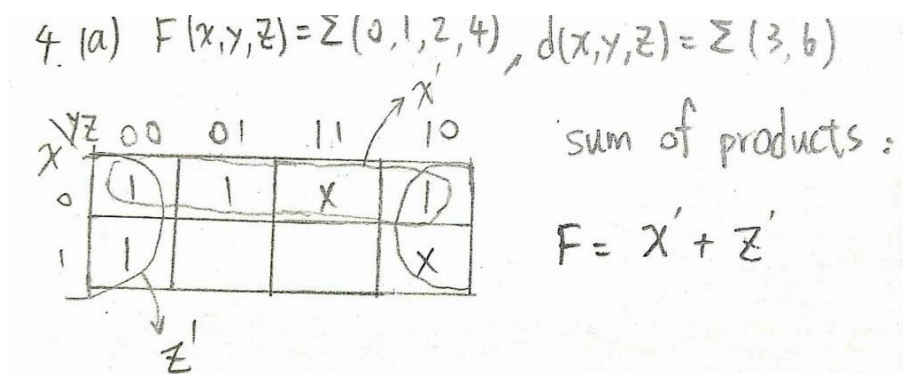 4. (a) F(x,y,z)=Σ(0,1,2,4), d(x,y,z)=Σ(3,6)
x'
yz 00 01 11 10
x
0 1 1 x 1
1 1 x
z'
sum of products:
F = x' + z'